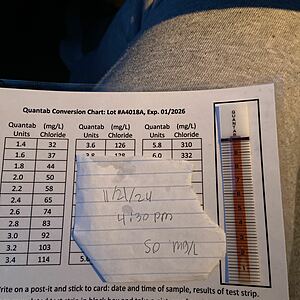 Quantab Conversion Chart: Lot #A4018A, Exp. 01/2026
Quantab Units (mg/L) Chloride Quantab Units (mg/L) Chloride Quantab Units (mg/L) Chloride
1.4 32 3.6 126 5.8 310
1.6 37 3.8 138 6.0 332
1.8 44
2.0 50
2.2 58
2.4 65
2.6 74
2.8 83
3.0 92
3.2 103
3.4 114 5.
11/21/24
4:30 pm
50 mg/L
QUANTAB
Write on a post-it and stick to card: date and time of sample, results of test strip.